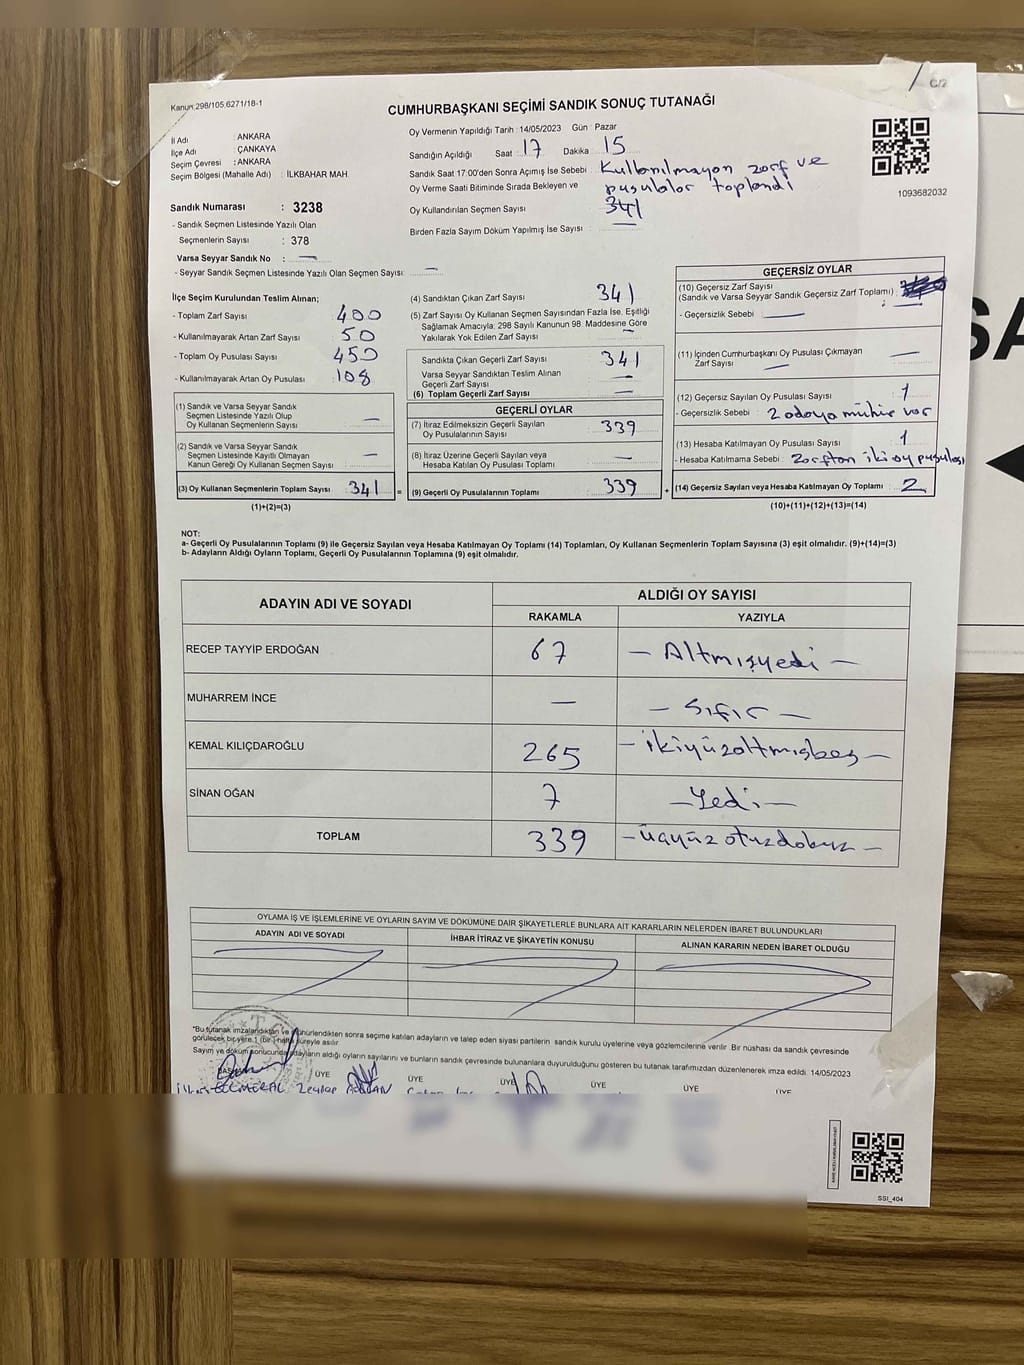 Kanun:298/105,6271/18-1
C/2
CUMHURBAŞKANI SEÇİMİ SANDIK SONUÇ TUTANAĞI
İl Adı : ANKARA
İlçe Adı : ÇANKAYA
Seçim Çevresi : ANKARA
Seçim Bölgesi (Mahalle Adı) : İLKBAHAR MAH.
Oy Vermenin Yapıldığı Tarih :14/05/2023 Gün : Pazar
Sandığın Açıldığı Saat 17 Dakika 15
Sandık Saat 17:00'den Sonra Açımış İse Sebebi : Kullanılmayan zarf ve
Oy Verme Saati Bitiminde Sırada Bekleyen ve pusulalar toplandı
Oy Kullandırılan Seçmen Sayısı 341
Birden Fazla Sayım Döküm Yapılmış İse Sayısı : —
1093682032
Sandık Numarası : 3238
- Sandık Seçmen Listesinde Yazılı Olan
Seçmenlerin Sayısı : 378
Varsa Seyyar Sandık No : —
- Seyyar Sandık Seçmen Listesinde Yazılı Olan Seçmen Sayısı: —
İlçe Seçim Kurulundan Teslim Alınan;
- Toplam Zarf Sayısı : 400
- Kullanılmayarak Artan Zarf Sayısı : 50
- Toplam Oy Pusulası Sayısı : 450
- Kullanılmayarak Artan Oy Pusulası : 108
(1) Sandık ve Varsa Seyyar Sandık
Seçmen Listesinde Yazılı Olup
Oy Kullanan Seçmenlerin Sayısı —
(2) Sandık ve Varsa Seyyar Sandık
Seçmen Listesinde Kayıtlı Olmayan
Kanun Gereği Oy Kullanan Seçmen Sayısı —
(3) Oy Kullanan Seçmenlerin Toplam Sayısı 341 =
(1)+(2)=(3)
(4) Sandıktan Çıkan Zarf Sayısı 341
(5) Zarf Sayısı Oy Kullanan Seçmen Sayısından Fazla İse, Eşitliği
Sağlamak Amacıyla; 298 Sayılı Kanunun 98. Maddesine Göre
Yakılarak Yok Edilen Zarf Sayısı —
Sandıkta Çıkan Geçerli Zarf Sayısı 341
Varsa Seyyar Sandıktan Teslim Alınan —
Geçerli Zarf Sayısı
(6) Toplam Geçerli Zarf Sayısı —
GEÇERLİ OYLAR
(7) İtiraz Edilmeksizin Geçerli Sayılan 339
Oy Pusulalarının Sayısı
(8) İtiraz Üzerine Geçerli Sayılan veya —
Hesaba Katılan Oy Pusulası Toplamı
(9) Geçerli Oy Pusulalarının Toplamı 339 +
GEÇERSİZ OYLAR
(10) Geçersiz Zarf Sayısı
(Sandık ve Varsa Seyyar Sandık Geçersiz Zarf Toplamı) :
- Geçersizlik Sebebi : —
(11) İçinden Cumhurbaşkanı Oy Pusulası Çıkmayan —
Zarf Sayısı —
(12) Geçersiz Sayılan Oy Pusulası Sayısı 1
- Geçersizlik Sebebi : 2 adaya mühür var
(13) Hesaba Katılmayan Oy Pusulası Sayısı 1
- Hesaba Katılmama Sebebi : zarftan iki oy pusulası
(14) Geçersiz Sayılan veya Hesaba Katılmayan Oy Toplamı 2
(10)+(11)+(12)+(13)=(14)
NOT:
a- Geçerli Oy Pusulalarının Toplamı (9) ile Geçersiz Sayılan veya Hesaba Katılmayan Oy Toplamı (14) Toplamları, Oy Kullanan Seçmenlerin Toplam Sayısına (3) eşit olmalıdır. (9)+(14)=(3)
b- Adayların Aldığı Oyların Toplamı, Geçerli Oy Pusulalarının Toplamına (9) eşit olmalıdır.
ADAYIN ADI VE SOYADI ALDIĞI OY SAYISI
RAKAMLA YAZIYLA
RECEP TAYYİP ERDOĞAN 67 — Altmışyedi —
MUHARREM İNCE — — Sıfır —
KEMAL KILIÇDAROĞLU 265 — ikiyüzaltmışbeş —
SİNAN OĞAN 7 — Yedi —
TOPLAM 339 — üçyüzotuzdokuz —
OYLAMA İŞ VE İŞLEMLERİNE VE OYLARIN SAYIM VE DÖKÜMÜNE DAİR ŞİKAYETLERLE BUNLARA AİT KARARLARIN NELERDEN İBARET BULUNDUKLARI
ADAYIN ADI VE SOYADI İHBAR İTİRAZ VE ŞİKAYETİN KONUSU ALINAN KARARIN NEDEN İBARET OLDUĞU
"Bu tutanak imzalandıktan ve mühürlendikten sonra seçime katılan adayların ve talep eden siyasi partilerin sandık kurulu üyelerine veya gözlemcilerine verilir. Bir nüshası da sandık çevresinde
görülecek bir yere 1 (bir) hafta süreyle asılır.
Sayım ve döküm sonucunda adayların aldığı oyların sayılarını ve bunların sandık çevresinde bulunanlara duyurulduğunu gösteren bu tutanak tarafımızdan düzenlenerek imza edildi. 14/05/2023
ÜYE ÜYE ÜYE ÜYE ÜYE ÜYE
Zeynep
SSİ_404
SA